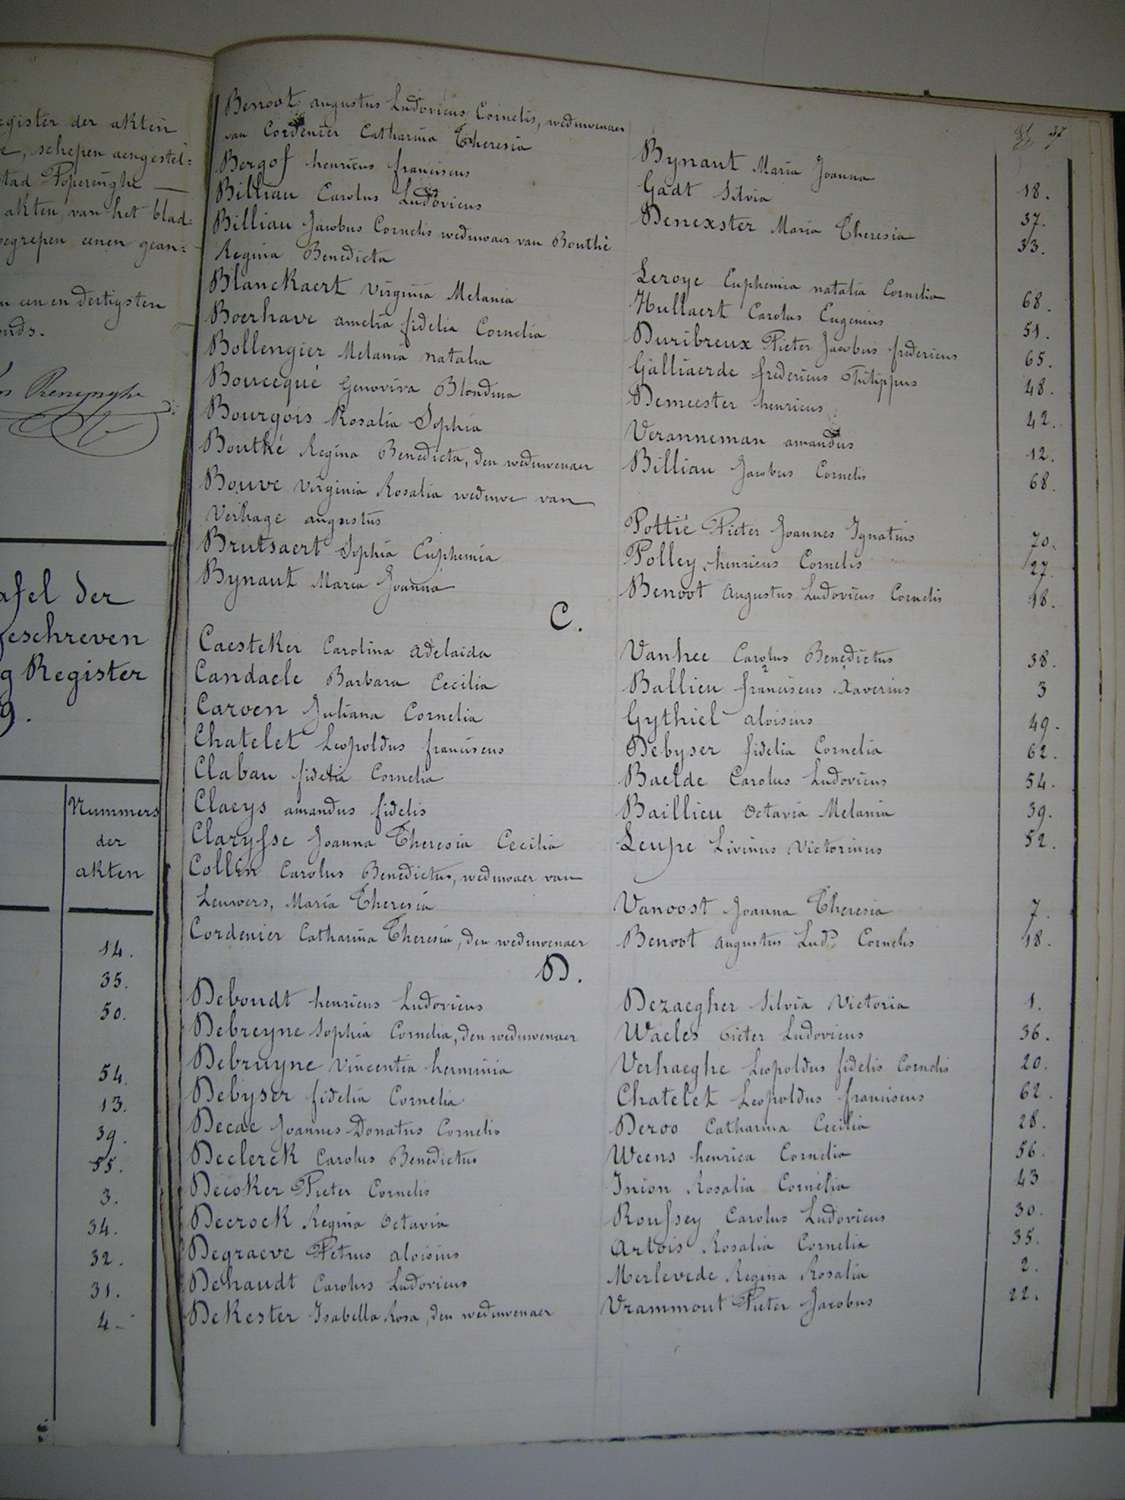 egister der akten
e, schepen aengestel=
stad Poperinghe —
akten, van het blad=
begrepen eenen gean=
en een en dertigsten
onds.
afel der
geschreven
g Register
9.
Nummers
der
akten
14.
35.
50.
54.
13.
39.
55.
3.
34.
32.
31.
4
37
Benoot augustus Ludovicus Cornelis, weduwenaer
van Cordenier Catharina Theresia Bynaut Maria Joanna 18.
Bergof henricus franciscus Gadt Silvia 37.
Billiau Carolus Ludovicus Denexster Maria Theresia 33.
Billiau Jacobus Cornelis weduwaer van Bouthé
Regina Benedicta Leroye Euphemia natalia Cornelia 68.
Blanckaert Virginia Melania Hullaert Carolus Eugenius 51.
Boerhave amelia fidelia Cornelia Duribreux Pieter Jacobus fredericus 65.
Bollengier Melania natalia Galliaerde fredericus Philippus 48.
Boucequé Genoviva Blondina Demeester henricus 42.
Bourgois Rosalia Sophia Veranneman amandus 12.
Boutké Regina Benedicta, den weduwenaer Billiau Jacobus Cornelis 68.
Bouve Virginia Rosalia weduwe van
Verhage augustus Pottié Pieter Joannes Ignatius 70.
Brutsaert Sophia Euphemia Polley henricus Cornelis 27.
Bynaut Maria Joanna Benoot Augustus Ludovicus Cornelis 18.
C.
Caesteker Carolina adelaida Vanhee Carolus Benedictus 38.
Candaele Barbara Cecilia Ballieu franciscus Xaverius 3
Caroen Juliana Cornelia Gythiel aloisius 49.
Chatelet Leopoldus franciscus Debyser fidelia Cornelia 62.
Clabau fidelia Cornelia Baelde Carolus Ludovicus 54.
Claeys amandus fidelis Baillieu octavia Melania 39.
Clarysse Joanna Theresia Cecilia Leupe Livinus Victorinus 52.
Collin Carolus Benedictus, weduwaer van
Leuwers, Maria Theresia Vanoost Joanna Theresia 7.
Cordenier Catharina Theresia, den weduwenaer Benoot augustus Lud. Cornelis 18.
D.
Deboudt henricus Ludovicus Dezaegher Silvia Victoria 1.
Debreyne Sophia Cornelia, den weduwenaer Waeles Pieter Ludovicus 36.
Debruyne Vincentia herminia Verhaeghe Leopoldus fidelis Cornelis 20.
Debyser fidelia Cornelia Chatelet Leopoldus franciscus 62.
Decae Joannes Donatus Cornelis Deroo Catharina Cecilia 28.
Declerck Carolus Benedictus Weens henrica Cornelia 56.
Decoker Pieter Cornelis Inion Rosalia Cornelia 43
Decrock Regina octavia Roussey Carolus Ludovicus 30.
Degraeve Petrus aloisius Artois Rosalia Cornelia 35.
Dehaudt Carolus Ludovicus Merlevede Regina Rosalia 2.
DeKester Isabella Rosa, den weduwenaer Vrammout Pieter Jacobus 22.